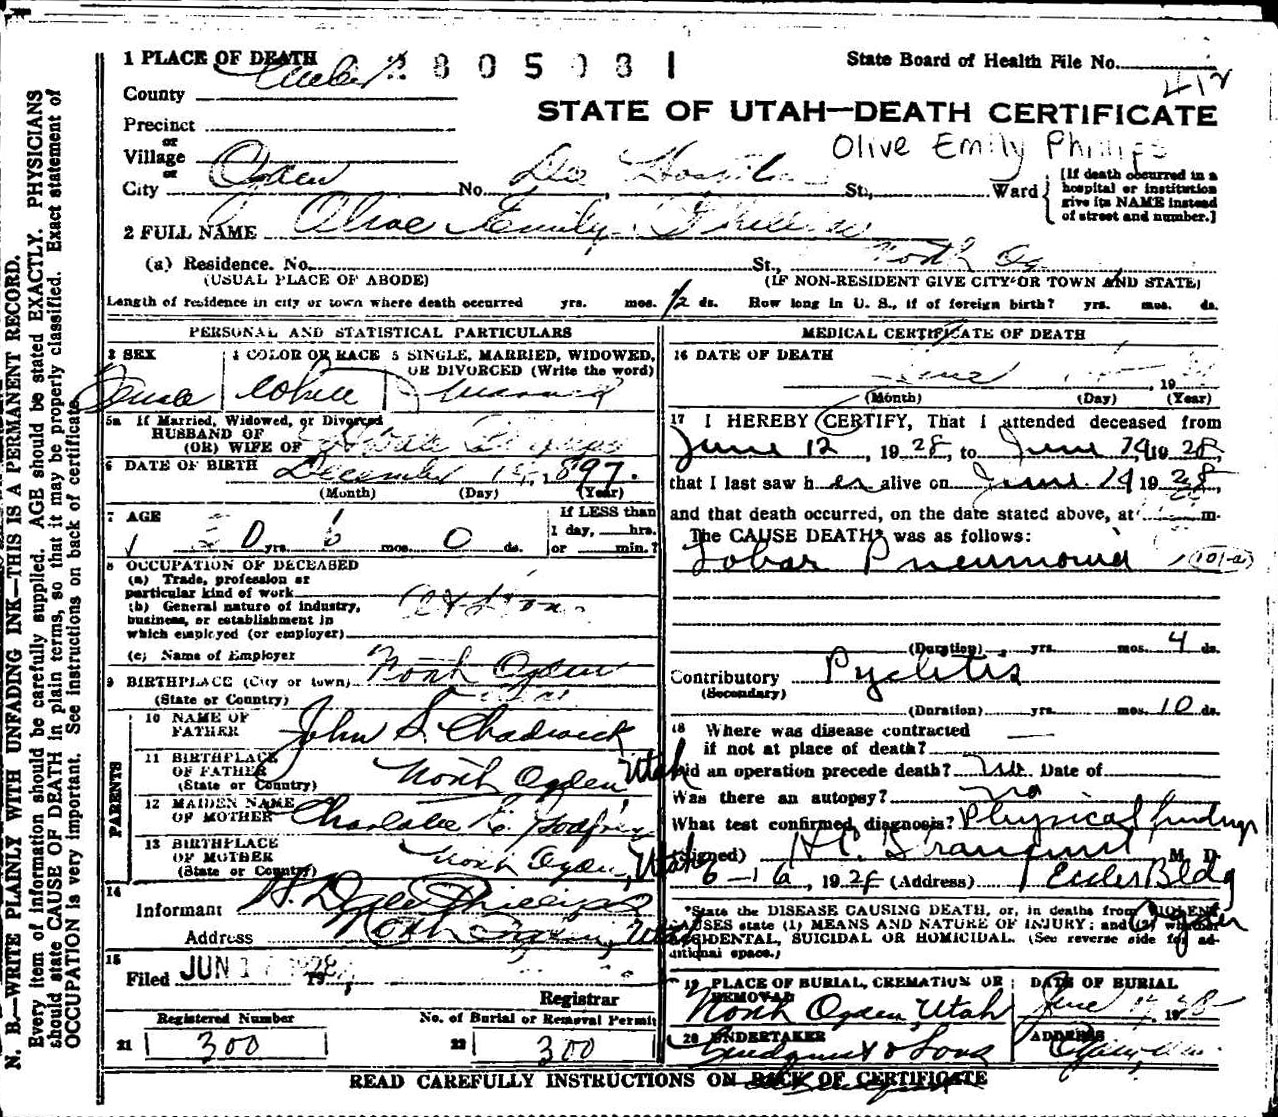 1 PLACE OF DEATH 2805031 State Board of Health File No.
County Weber 412
STATE OF UTAH—DEATH CERTIFICATE
Precinct
or
Village
or
Olive Emily Phillips
City Ogden No. Dee Hospital St., Ward
[If death occurred in a
hospital or institution
give its NAME instead
of street and number.]
2 FULL NAME Olive Emily Phillips
(a) Residence. No. St., North
(USUAL PLACE OF ABODE) (IF NON-RESIDENT GIVE CITY OR TOWN AND STATE)
Length of residence in city or town where death occurred yrs. mos. 1/2 ds. How long in U. S., if of foreign birth? yrs. mos. ds.
PERSONAL AND STATISTICAL PARTICULARS
3 SEX 4 COLOR OR RACE 5 SINGLE, MARRIED, WIDOWED,
OR DIVORCED (Write the word)
Female White Married
5a If Married, Widowed, or Divorced
HUSBAND OF
(OR) WIFE OF
6 DATE OF BIRTH December 1897.
(Month) (Day) (Year)
7 AGE If LESS than
1 day, hrs.
or min.?
yrs. 6 mos. 0 ds.
8 OCCUPATION OF DECEASED
(a) Trade, profession or
particular kind of work
(b) General nature of industry,
business, or establishment in
which employed (or employer)
(c) Name of Employer
9 BIRTHPLACE (City or town) North Ogden
(State or Country)
PARENTS
10 NAME OF
FATHER John S. Chadwick
11 BIRTHPLACE
OF FATHER North Ogden Utah
(State or Country)
12 MAIDEN NAME
OF MOTHER Charlotte
13 BIRTHPLACE
OF MOTHER North Ogden, Utah
(State or Country)
14
Informant Phillips
Address North Ogden, Utah
15
Filed JUN 17 1928 19
Registrar
Registered Number No. of Burial or Removal Permit
21 300 22 300
MEDICAL CERTIFICATE OF DEATH
16 DATE OF DEATH
June , 19
(Month) (Day) (Year)
17 I HEREBY CERTIFY, That I attended deceased from
June 12, 1928, to June 14 1928,
that I last saw her alive on June 14 1928,
and that death occurred, on the date stated above, at m.
The CAUSE DEATH* was as follows:
Lobar Pneumonia (101-a)
(Duration) yrs. mos. 4 ds.
Contributory Pyelitis
(Secondary)
(Duration) yrs. mos. 10 ds.
18 Where was disease contracted
if not at place of death? —
Did an operation precede death? no. Date of
Was there an autopsy? no
What test confirmed diagnosis? Physical findings
(Signed) M. D.
6-16, 1928 (Address) Eccles Bldg
Ogden
*State the DISEASE CAUSING DEATH, or, in deaths from VIOLENT
CAUSES state (1) MEANS AND NATURE OF INJURY; and (2) whether
ACCIDENTAL, SUICIDAL OR HOMICIDAL. (See reverse side for ad-
ditional space.)
19 PLACE OF BURIAL, CREMATION OR REMOVAL DATE OF BURIAL
North Ogden, Utah June 1928
20 UNDERTAKER ADDRESS
& Sons
READ CAREFULLY INSTRUCTIONS ON BACK OF CERTIFICATE
N. B.—WRITE PLAINLY WITH UNFADING INK—THIS IS A PERMANENT RECORD.
Every item of information should be carefully supplied. AGE should be stated EXACTLY. PHYSICIANS
should state CAUSE OF DEATH in plain terms, so that it may be properly classified. Exact statement of
OCCUPATION is very important. See instructions on back of certificate.